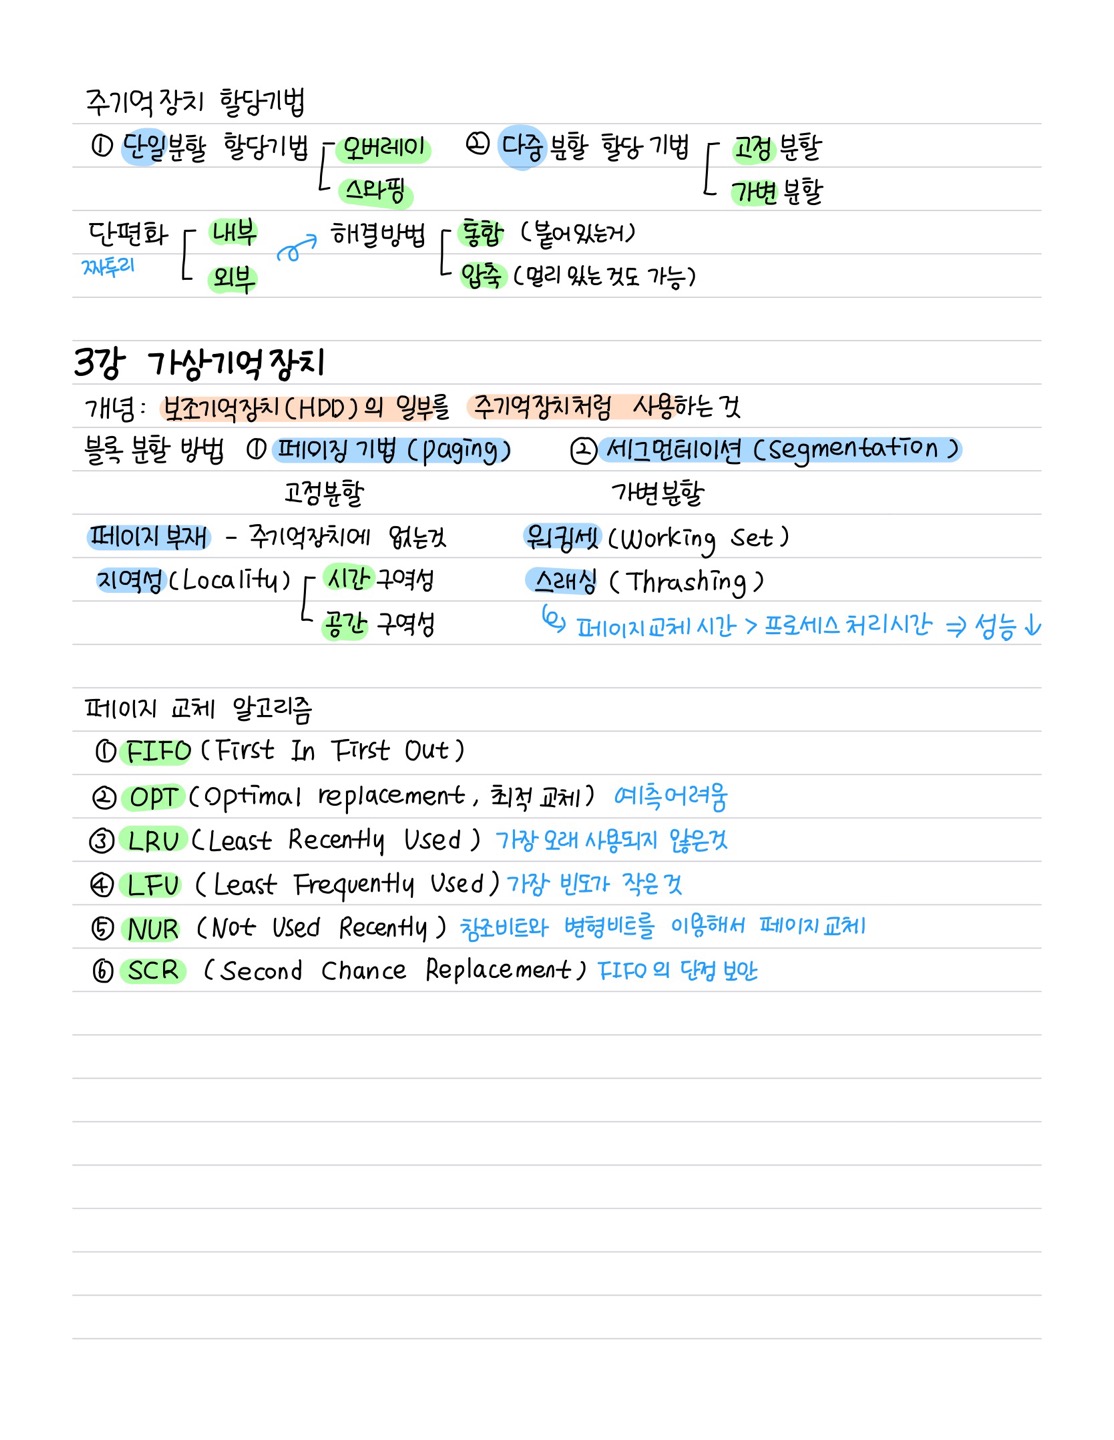 주기억장치 할당기법
① 단일분할 할당기법 오버레이 ② 다중분할 할당 기법 고정분할
스와핑 가변분할
단편화 내부 해결방법 통합 (붙어있는거)
짜투리 외부 압축 (멀리 있는 것도 가능)
3강 가상기억장치
개념: 보조기억장치(HDD)의 일부를 주기억장치처럼 사용하는 것
블록 분할 방법 ① 페이징 기법 (paging) ② 세그먼테이션 (segmentation)
고정분할 가변분할
페이지 부재 - 주기억장치에 없는것 워킹셋 (Working Set)
지역성 (Locality) 시간 구역성 스래싱 (Thrashing)
공간 구역성 페이지교체 시간 > 프로세스 처리시간 ⇒ 성능↓
페이지 교체 알고리즘
① FIFO (First In First Out)
② OPT (Optimal replacement, 최적 교체) 예측어려움
③ LRU (Least Recently Used) 가장 오래 사용되지 않은것
④ LFU (Least Frequently Used) 가장 빈도가 작은 것
⑤ NUR (Not Used Recently) 참조비트와 변형비트를 이용해서 페이지교체
⑥ SCR (Second Chance Replacement) FIFO의 단점 보안